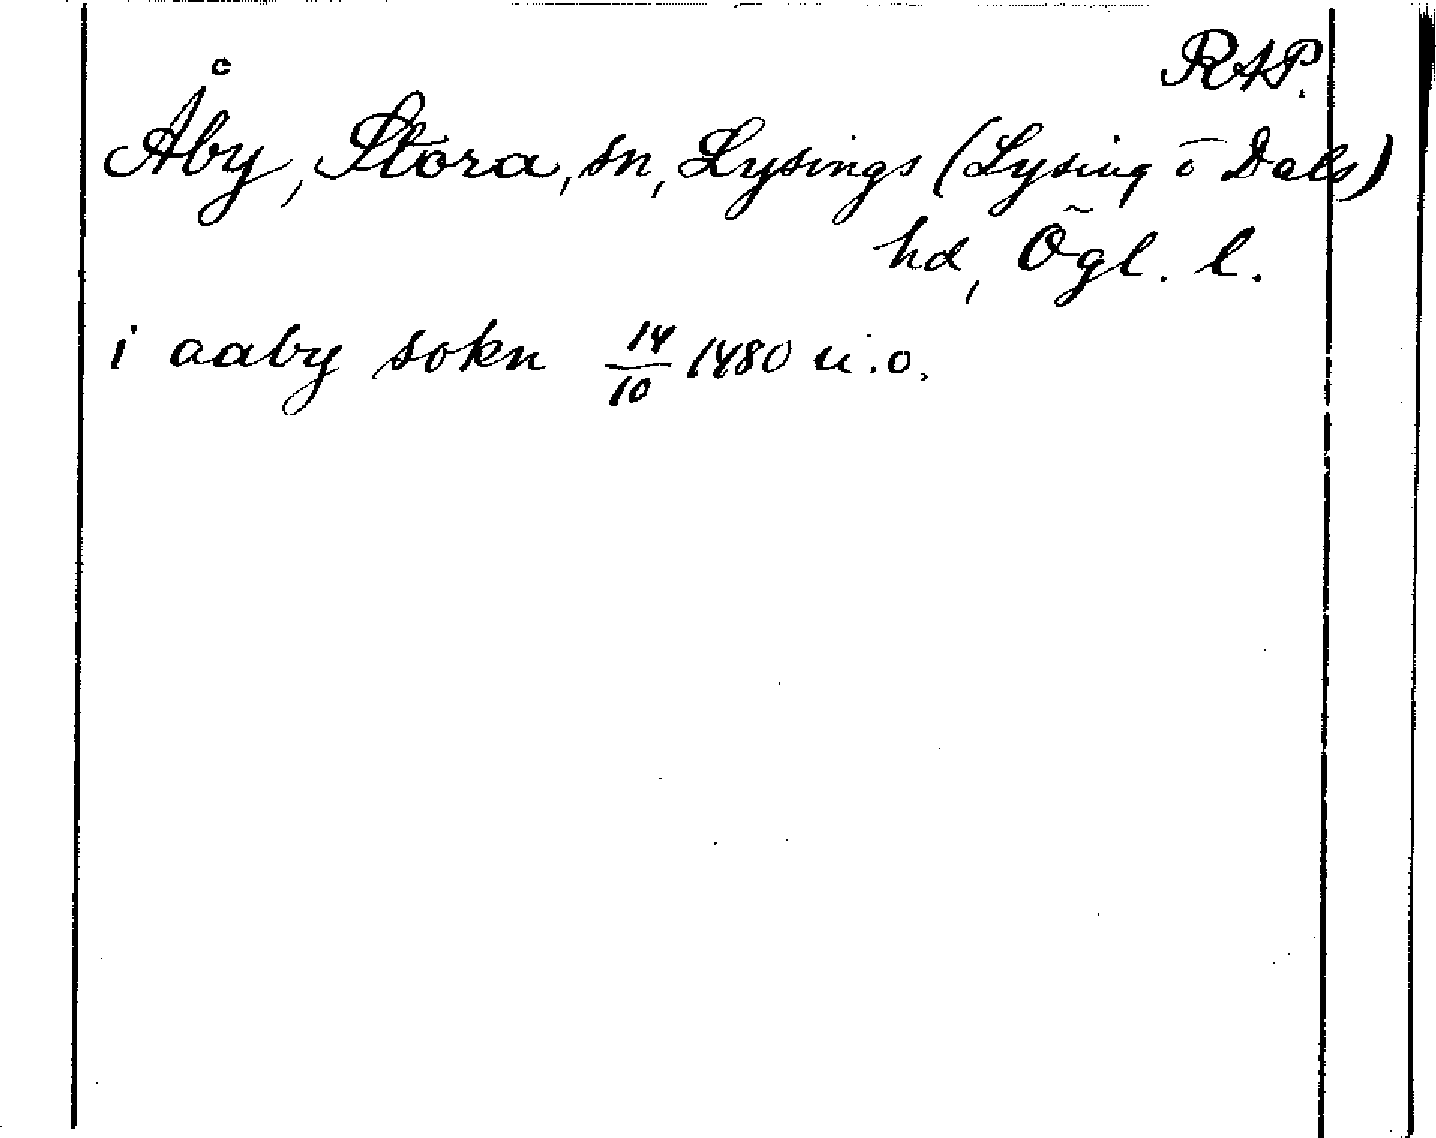 RAP.
Åby, Stora, sn, Lysings (Lysing o Dals)
hd, Ögl. l.
i aaby sokn 14/10 1480 u.o.